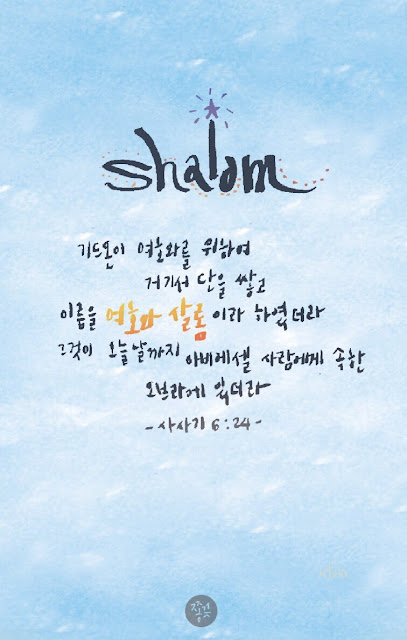 shalom
기드온이 여호와를 위하여
거기서 단을 쌓고
이름을 여호와 살롬이라 하였더라
그것이 오늘날까지 아비에셀 사람에게 속한
오브라에 있더라
-사사기 6:24-